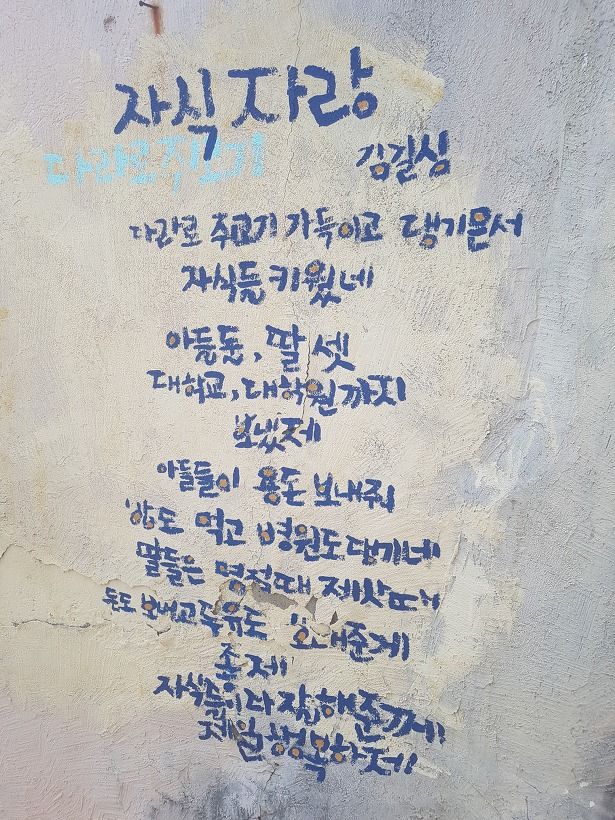 자식 자랑
다라로 주고기
김길심
다라로 주고기 가득이고 댕기믄서
자식들 키웠네
아들둘, 딸 셋
대학교, 대학원까지
보냈제
아들들이 용돈 보내줘
밥도 먹고 병원도 댕기네
딸들은 명절때 제삿때
돈도 보내고 두유도 보내준게
좋제
자식들이 다 잘해준께
제일 행복하제!